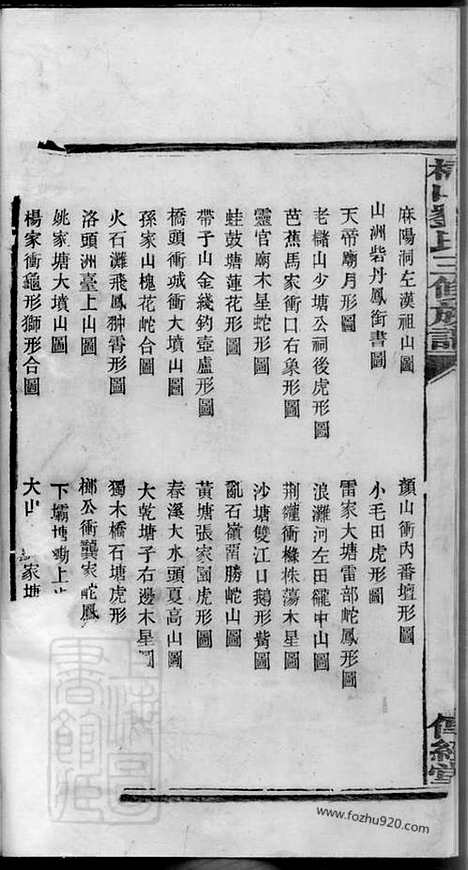 三修族譜
麻陽洞左漢祖山圖
山洲砦丹鳳銜書圖
天帝廟月形圖
老儲山少塘公祠後虎形圖
芭蕉馬家衝口右象形圖
靈官廟木星蛇形圖
蛙鼓塘蓮花形圖
帶子山金綫釣壺盧形圖
橋頭衝城衝大墳山圖
孫家山槐花蛇合圖
火石灘飛鳳翀霄形圖
洛頭洲臺上山圖
姚家塘大墳山圖
楊家衝龜形獅形合圖
顏山衝內番壇形圖
小毛田虎形圖
雷家大塘雷部蛇鳳形圖
浪灘河左田隴中山圖
荆衝株蕩木星圖
沙塘雙江口鵝形嘴圖
亂石嶺菌勝蛇山圖
黃塘張家園虎形圖
春溪大水頭夏高山圖
大乾塘子右邊木星圖
獨木橋石塘虎形
榔公衝龔家蛇鳳
下壩上
大山家塘
傳經堂
上海圖書館藏
www.fozhu920.com